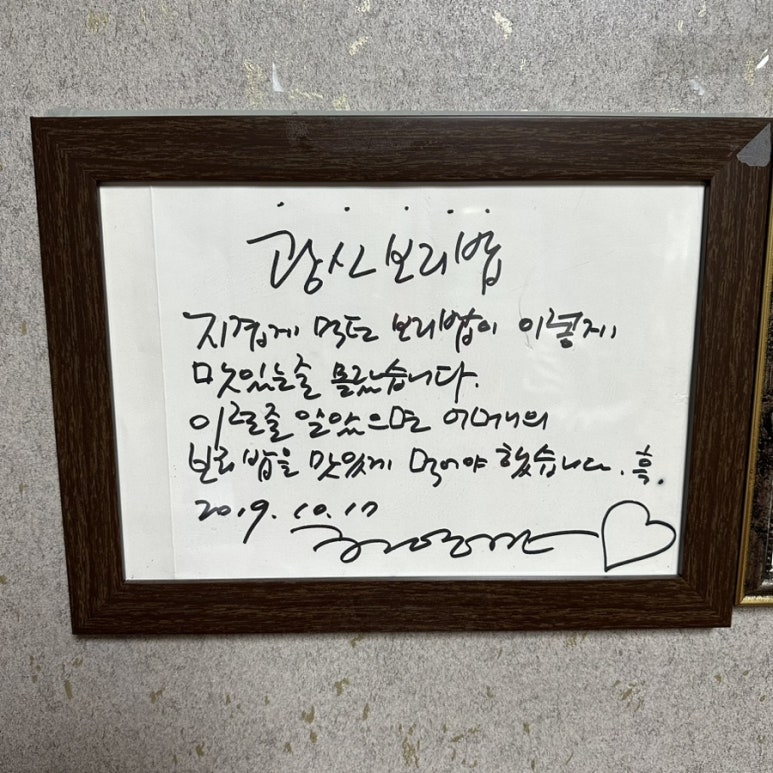 광산보리밥
지겹게 먹던 보리밥이 이렇게
맛있는줄 몰랐습니다.
이럴줄 알았으면 어머니의
보리밥을 맛있게 먹어야 했습니다. 흑.
2019. 10. 17